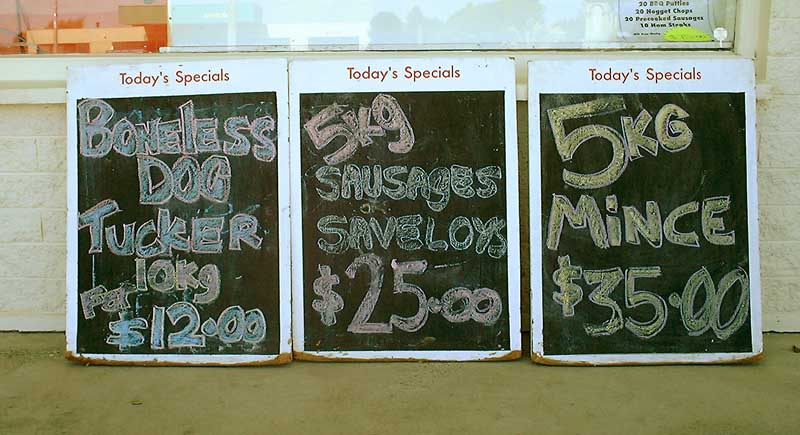 20 BBQ Patties
20 Nugget Chops
20 Precooked Sausages
10 Ham Steaks
Today's Specials
BONELESS
DOG
TUCKER
10kg
For
$12.00
Today's Specials
5kg
SAUSAGES
or
SAVELOYS
$25.00
Today's Specials
5KG
MiNCE
$35.00